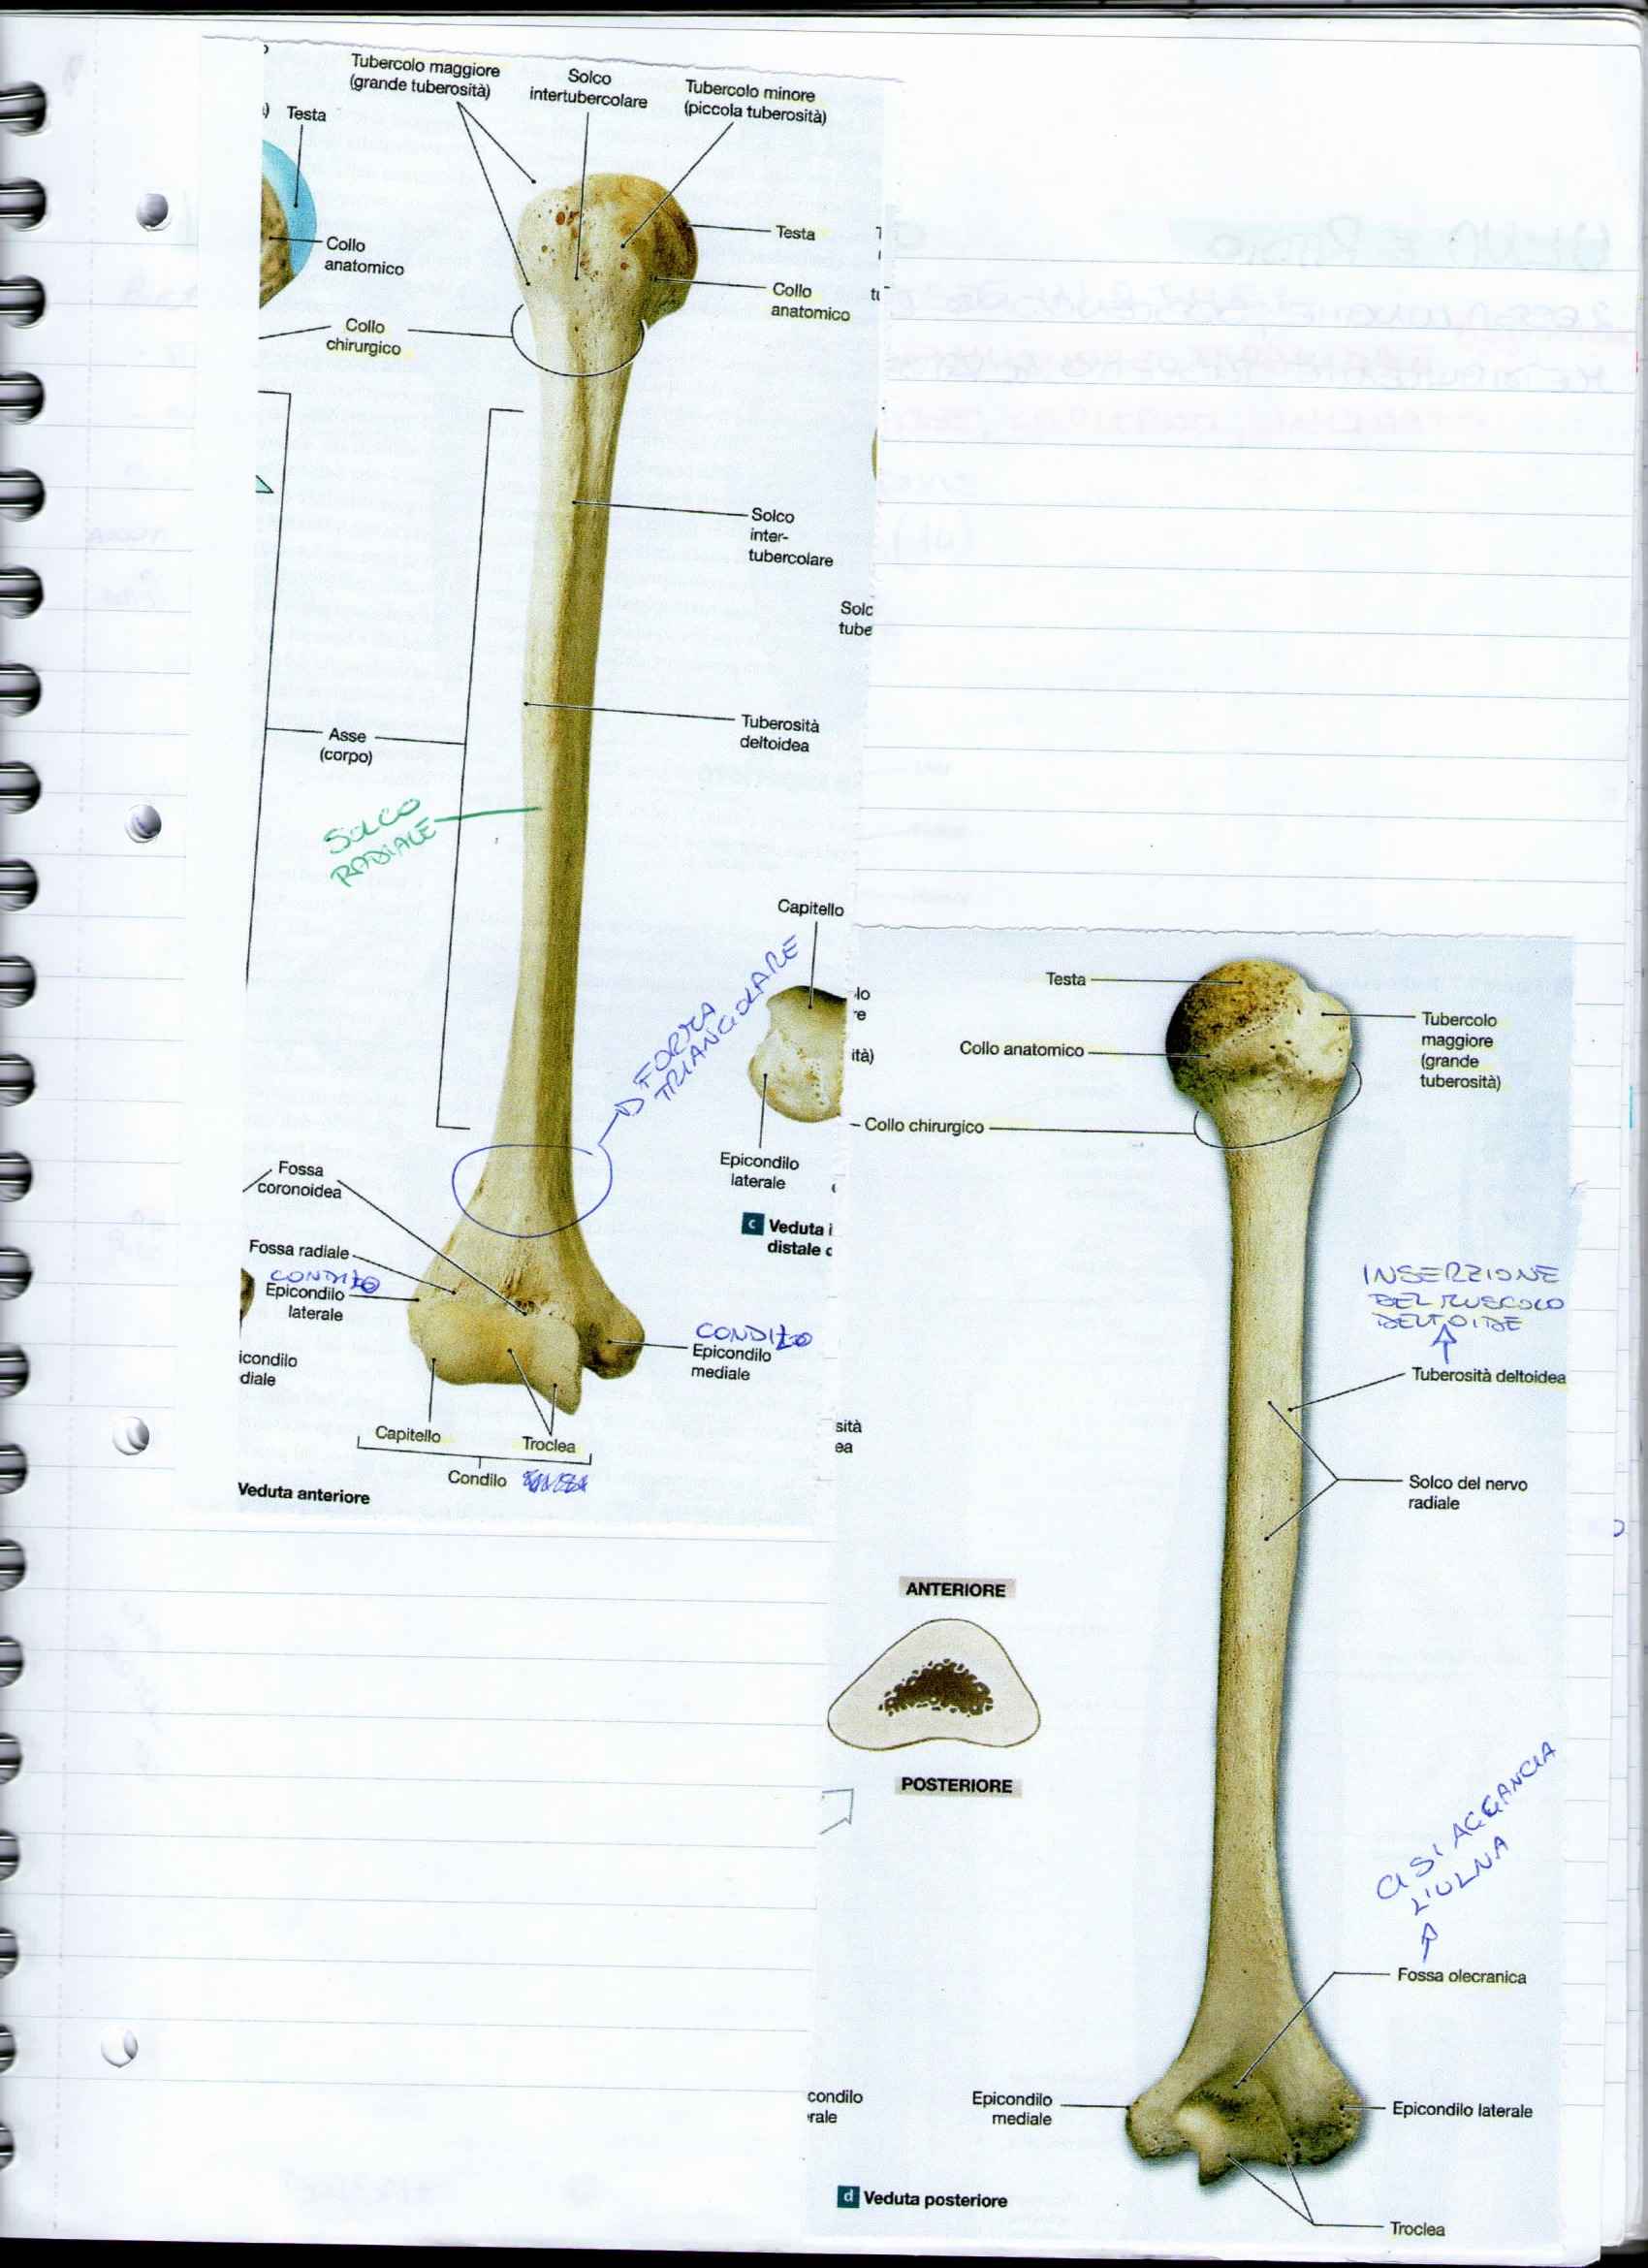 Tubercolo maggiore
(grande tuberosità)
Solco
intertubercolare
Tubercolo minore
(piccola tuberosità)
Testa
Collo
anatomico
Collo
chirurgico
Testa
Collo
anatomico
Solco
inter-
tubercolare
Solc
tube
Asse
(corpo)
Tuberosità
deltoidea
SOLCO
RADIALE
FORMA
TRIANGOLARE
Capitello
Epicondilo
laterale
c Veduta i
distale c
Fossa
coronoidea
Fossa radiale
CONDILO
Epicondilo
laterale
icondilo
diale
CONDILO
Epicondilo
mediale
Capitello
Troclea
Condilo
Veduta anteriore
lo
re
ità)
sità
ea
Testa
Collo anatomico
Collo chirurgico
Tubercolo
maggiore
(grande
tuberosità)
INSERZIONE
DEL MUSCOLO
DELTOIDE
Tuberosità deltoidea
Solco del nervo
radiale
ANTERIORE
POSTERIORE
CI SI AGGANCIA
L'ULNA
Fossa olecranica
condilo
rale
Epicondilo
mediale
Epicondilo laterale
d Veduta posteriore
Troclea